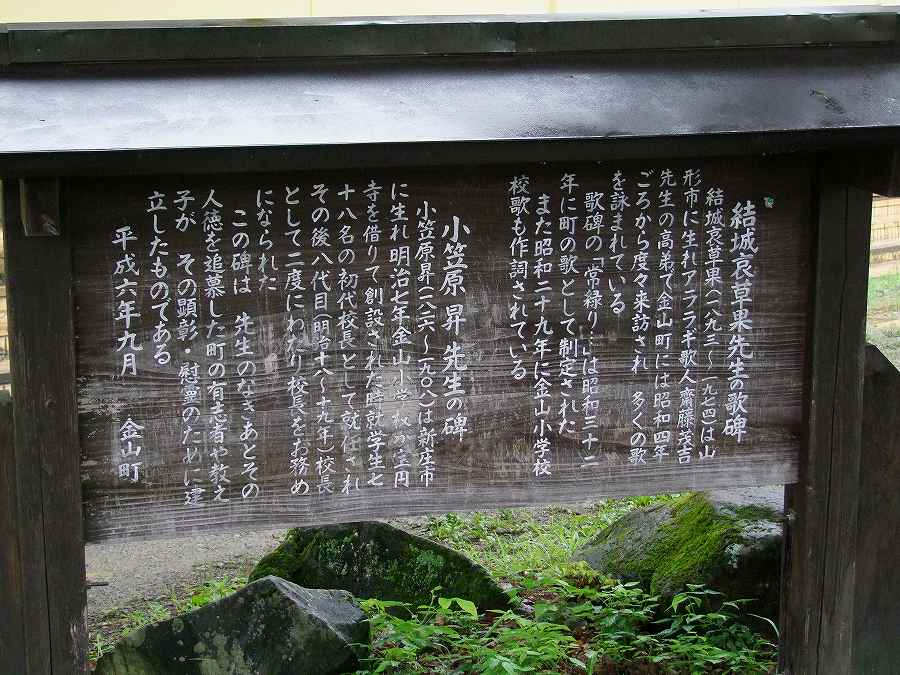 結城哀草果先生の歌碑
結城哀草果(一八九三〜一九七四)は山
形市に生れアララギ歌人齋藤茂吉
先生の高弟で金山町には昭和四年
ごろから度々来訪され 多くの歌
を詠まれている
歌碑の「常稑り…」は昭和三十二
年に町の歌として制定された
また昭和二十九年に金山小学校
校歌も作詞されている
小笠原 昇 先生の碑
小笠原昇(一八 六〜一九〇八)は新庄市
に生れ 明治七年金山小学校が宝円
寺を借りて創設された時就学生七
十八名の初代校長として就任され
その後八代目(明治十八〜十九年)校長
として二度にわたり校長をお務め
になられた
この碑は 先生のなきあとその
人徳を追慕した町の有志者や教え
子が その顕彰・慰霊のために建
立したものである
平成六年九月 金山町